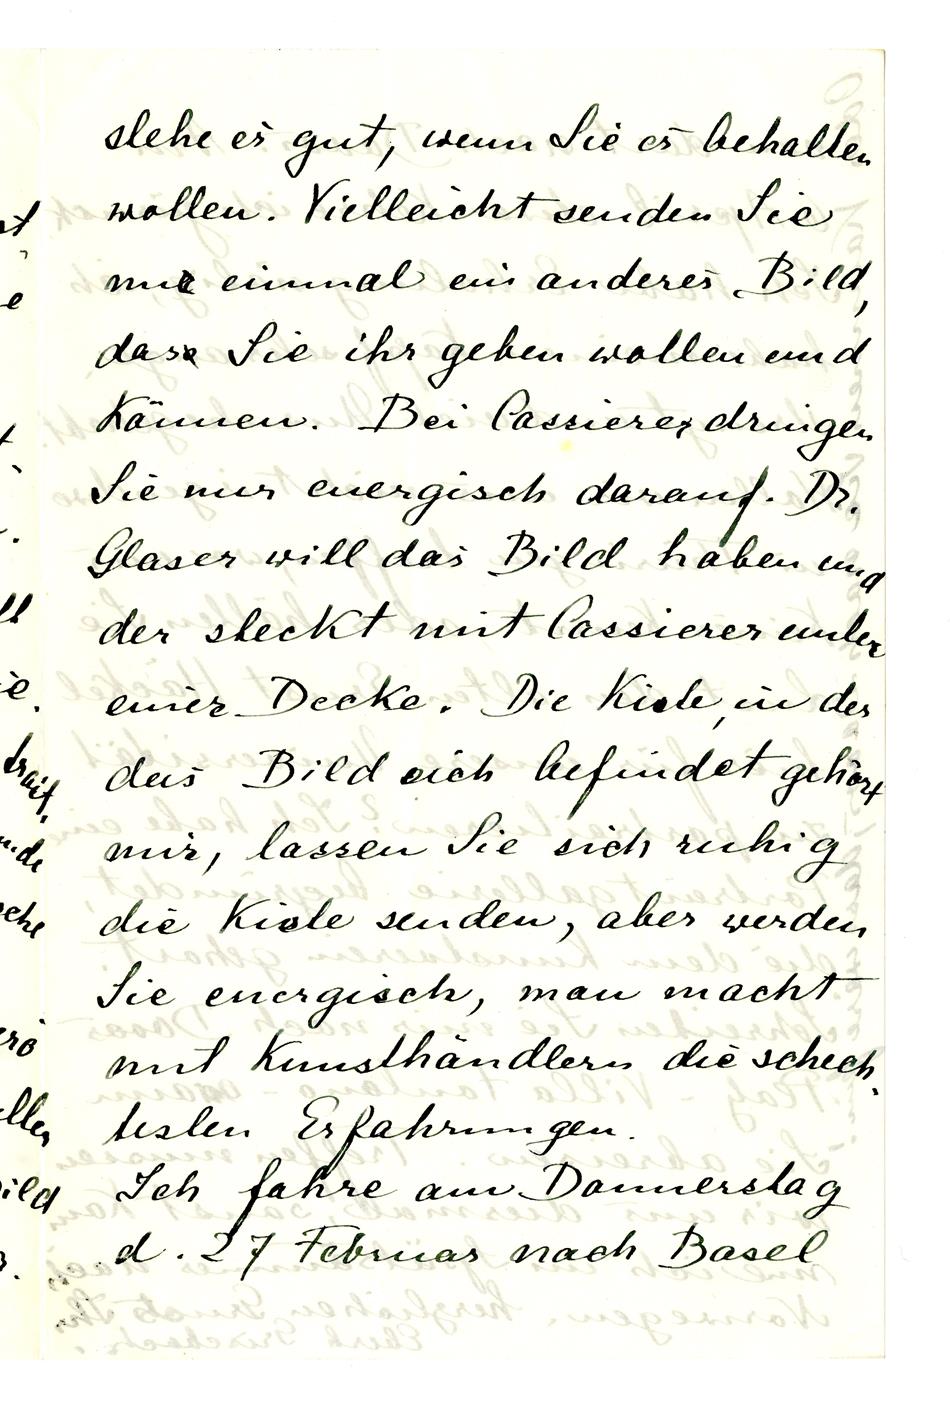 stehe es gut, wenn Sie es behalten
wollen. Vielleicht senden Sie
mir einmal ein anderes Bild,
dass Sie ihr geben wollen und
können. Bei Cassierer dringen
Sie nur energisch darauf. Dr.
Glaser will das Bild haben und
der steckt mit Cassierer unter
einer Decke. Die Kiste, in der
das Bild sich befindet gehört
mir, lassen Sie sich ruhig
die Kiste senden, aber werden
Sie energisch, man macht
mit Kunsthändlern die schech-
testen Erfahrungen.
Ich fahre am Donnerstag
d. 27 Februar nach Basel